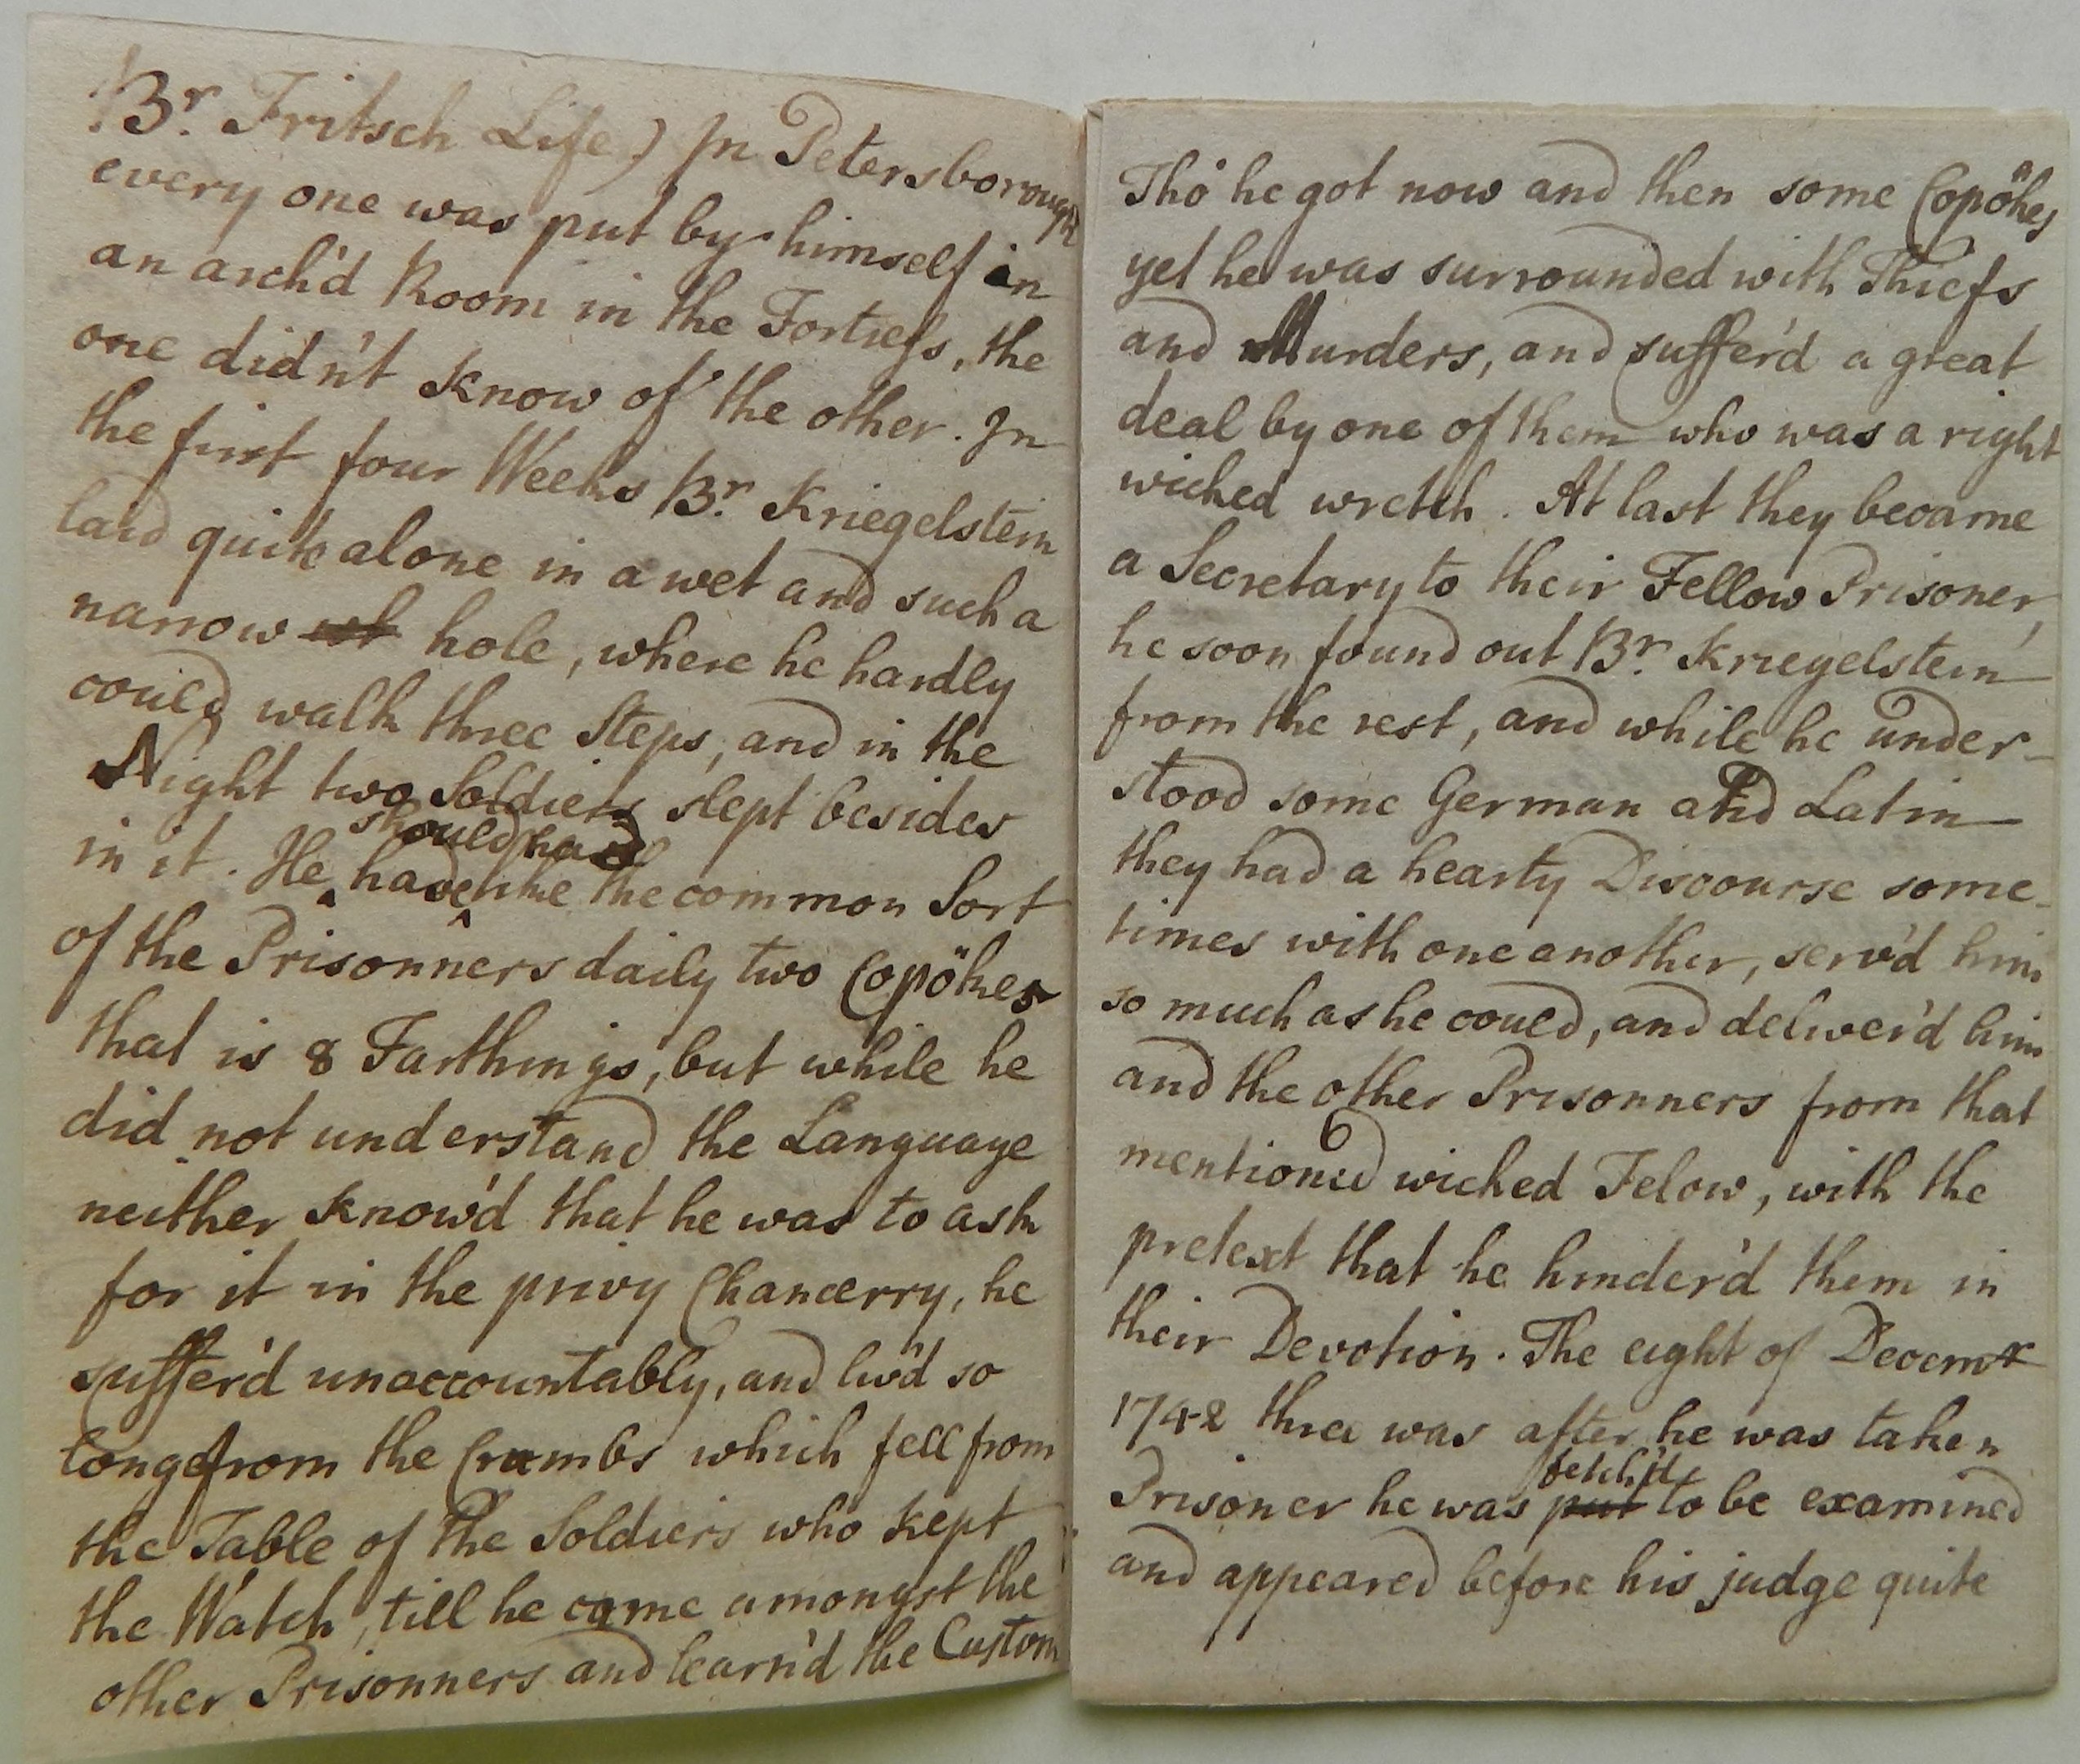 Br. Fritsch Life) In Petersborough
every one was put by himself in
an arch'd Room in the Fortress, the
one didn't know of the other. In
the first four Weeks Br. Kriegelstein
laid quite alone in a wet and such a
narrow hole, where he hardly
could walk three Steps, and in the
Night two Soldiers slept besides
should had
in it. He have like the common Sort
of the Prisonners daily two Copökes
that is 8 Farthings, but while he
did not understand the Language
neither know'd that he was to ask
for it in the privy Chancerry, he
suffer'd unaccountably, and liv'd so
long from the Crumbs which fell from
the Table of the Soldiers who kept
the Watch, till he came amongst the
other Prisonners and learn'd the Custom
Tho' he got now and then some Copökes
yet he was surrounded with Thiefs
and Murders, and suffer'd a great
deal by one of them who was a right
wicked wretch. At last they became
a Secretary to their Fellow Prisoner,
he soon found out Br. Kriegelstein
from the rest, and while he under-
stood some German and Latin
they had a hearty Discourse some-
times with one another, serv'd him
so much as he could, and deliver'd him
and the other Prisonners from that
mentioned wicked Felow, with the
pretext that he hinder'd them in
their Devotion. The eight of Decemr
1742 three was after he was taken
fetch't
Prisoner he was put to be examined
and appeared before his judge quite